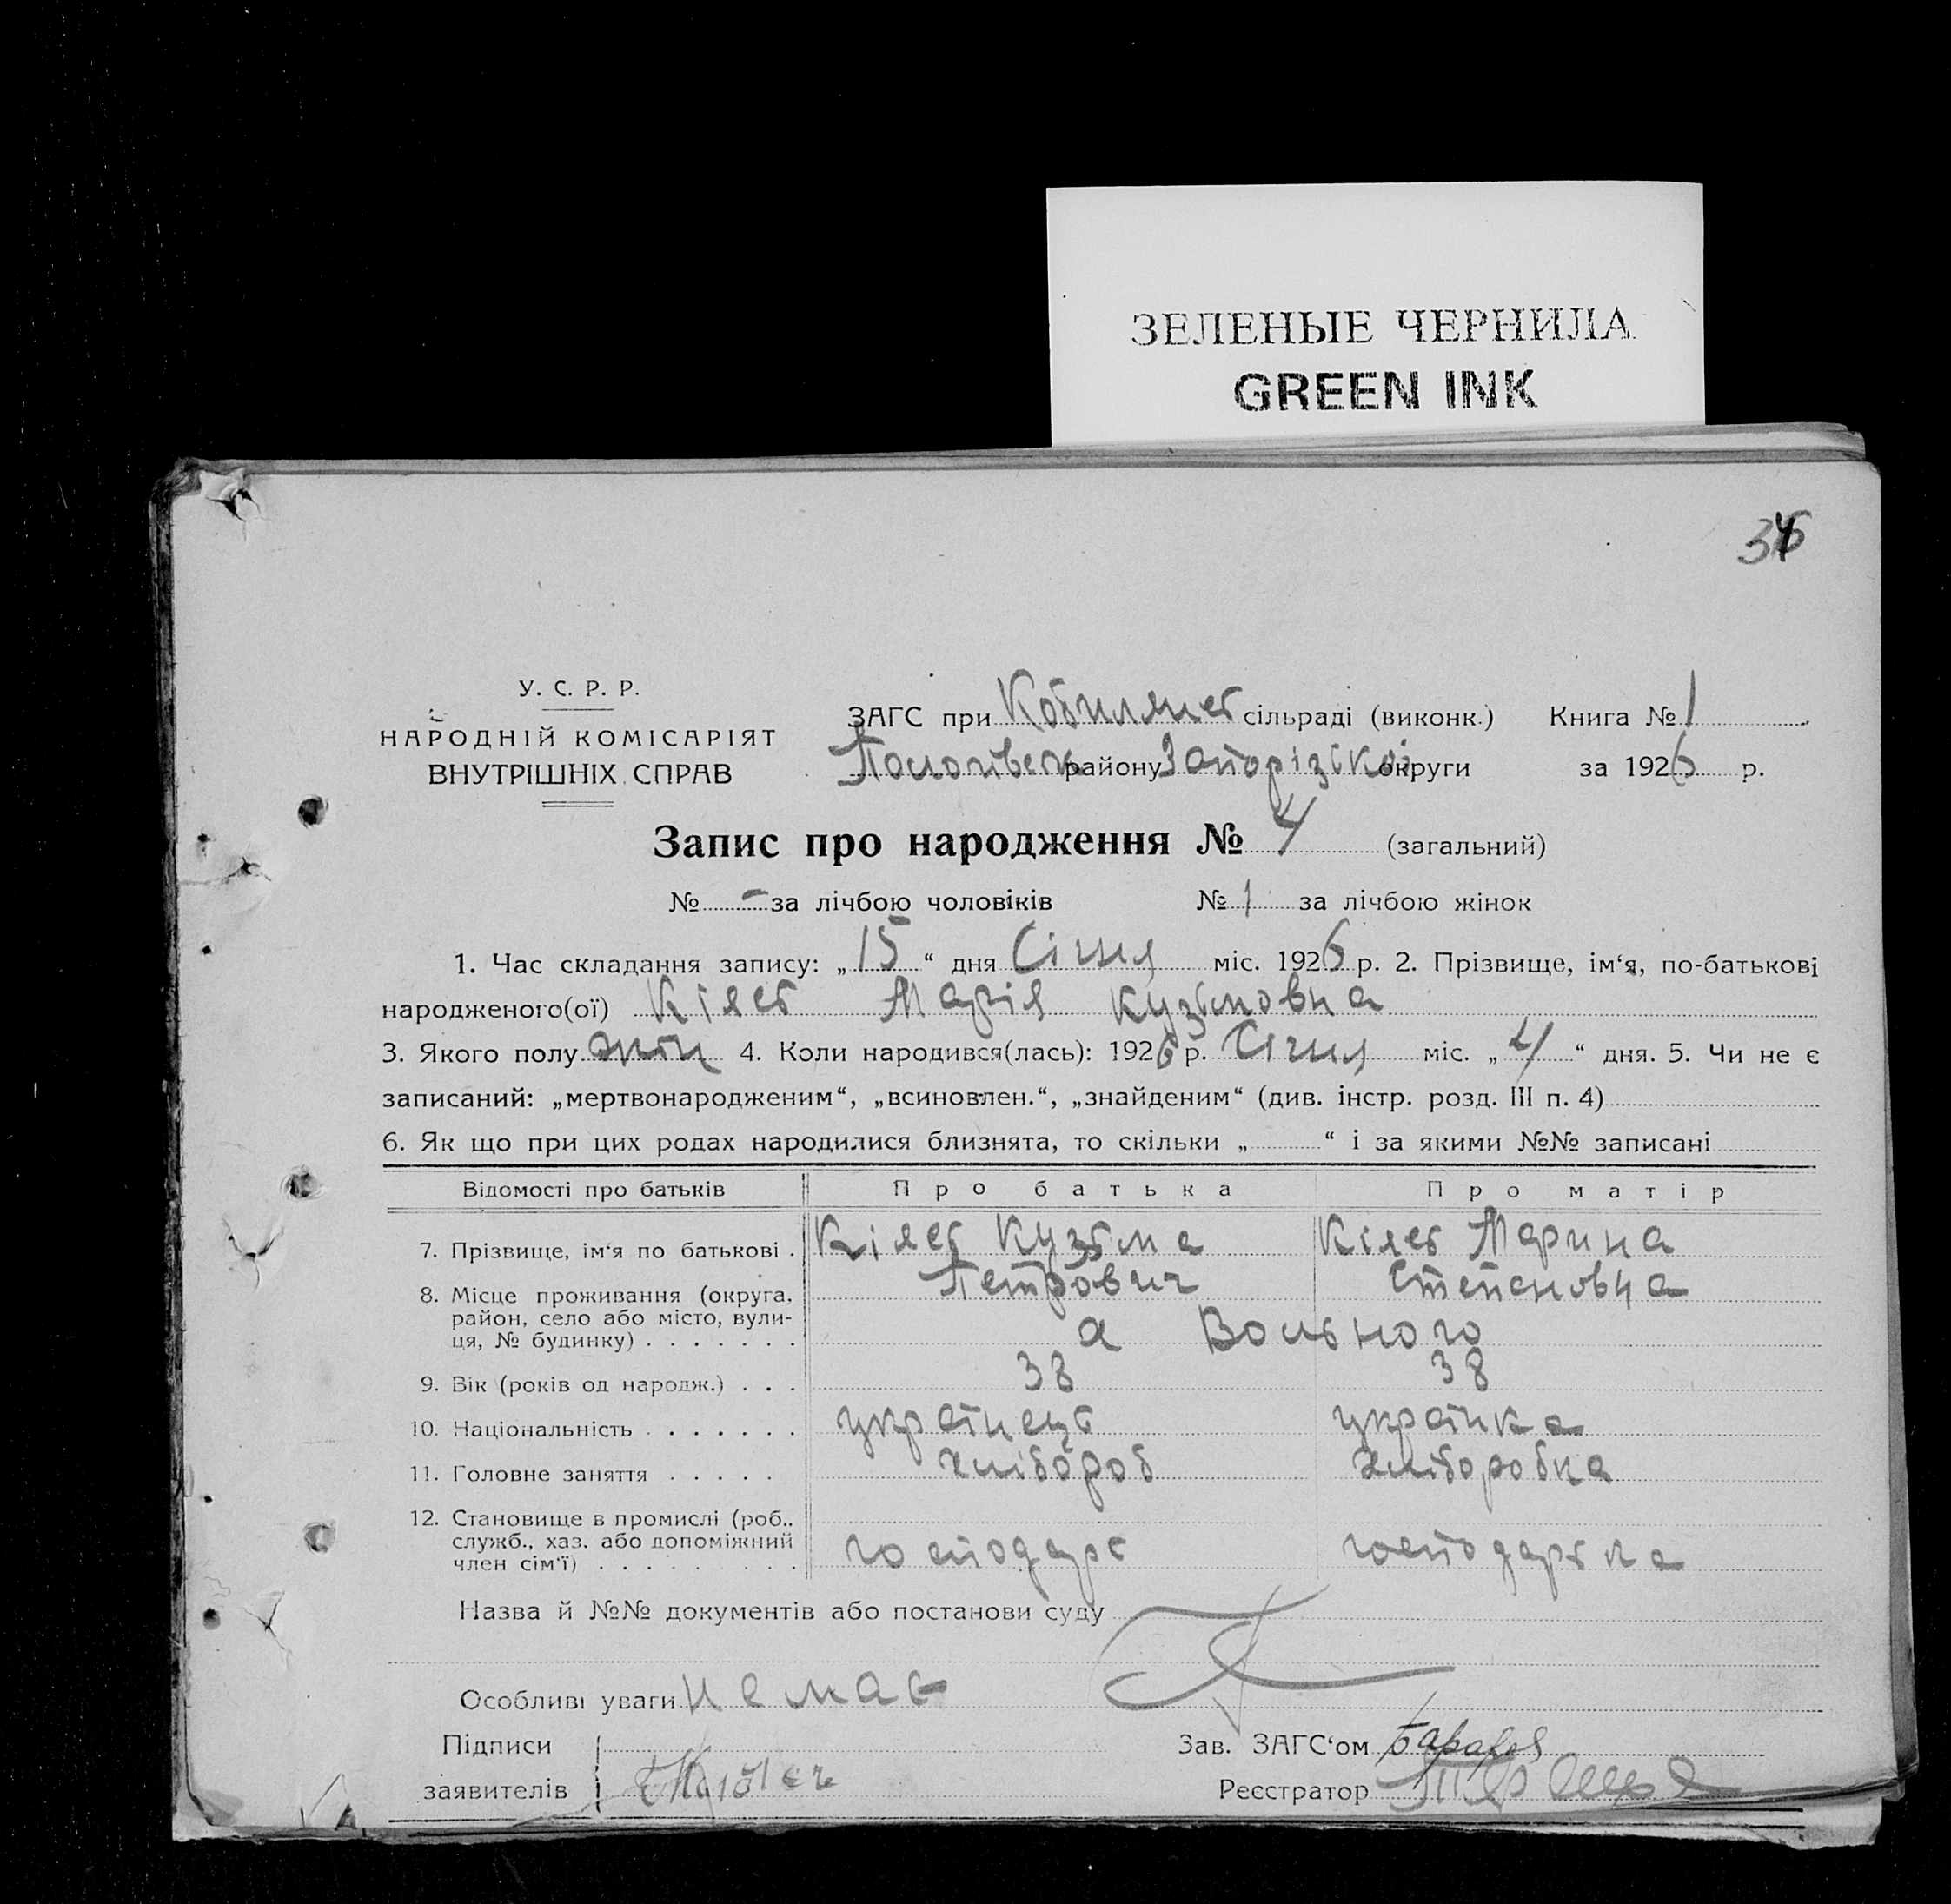 ЗЕЛЕНЫЕ ЧЕРНИЛА
GREEN INK
У. С. Р. Р.
НАРОДНІЙ КОМІСАРІЯТ
ВНУТРІШНІХ СПРАВ
ЗАГС при сільраді (виконк.) Книга № 1
району Запорізької округи за 1926 р.
Запис про народження № 4 (загальний)
№ - за лічбою чоловіків № 1 за лічбою жінок
1. Час складання запису: „15“ дня Січня міс. 1926 р. 2. Прізвище, ім‘я, по-батькові
народженого(ої) Кіяєв Марія Кузьмовна
3. Якого полу жін 4. Коли народився(лась): 1926 р. Січня міс. „4“ дня. 5. Чи не є
записаний: „мертвонародженим“, „всиновлен.“, „знайденим“ (див. інстр. розд. III п. 4)
6. Як що при цих родах народилися близнята, то скільки „ “ і за якими №№ записані
Відомості про батьків Про батька Про матір
7. Прізвище, ім‘я по батькові . Кузьма Марина
Петрович Степановна
8. Місце проживання (округа,
район, село або місто, вули-
ця, № будинку) . . . . . . . Вольного
9. Вік (років од народж.) . . . 38 38
10. Національність . . . . . . . українець українка
11. Головне заняття . . . . . хлібороб хліборобка
12. Становище в промислі (роб..
служб., хаз. або допоміжний
член сім‘ї) . . . . . . . . . господарь господарька
Назва й №№ документів або постанови суду
Особливі уваги немає
Підписи
заявителів
Зав. ЗАГС‘ом
Реєстратор